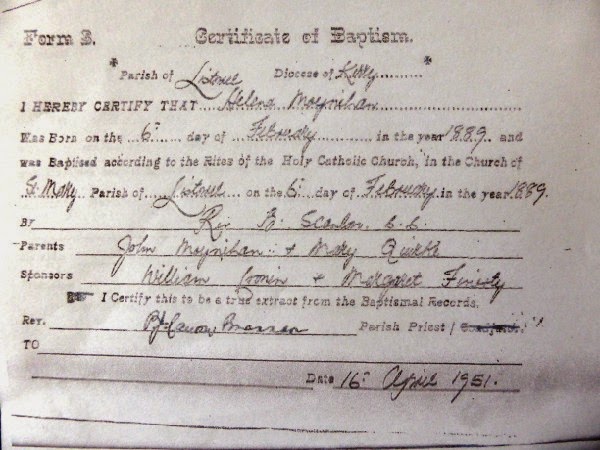 Form 3. Certificate of Baptism.
Parish of Listowel Diocese of Kerry
I HEREBY CERTIFY THAT Helena Moynihan
Was Born on the 6th day of February in the year 1889 and
was Baptised according to the Rites of the Holy Catholic Church, in the Church of
St. Mary Parish of Listowel on the 6th day of February in the year 1889.
By Rev. Scanlon C.C.
Parents John Moynihan & Mary Quirke
Sponsors William Cronin & Margaret
I Certify this to be a true extract from the Baptismal Records.
Rev. Brennan Parish Priest /
TO
Date 16th April 1951.